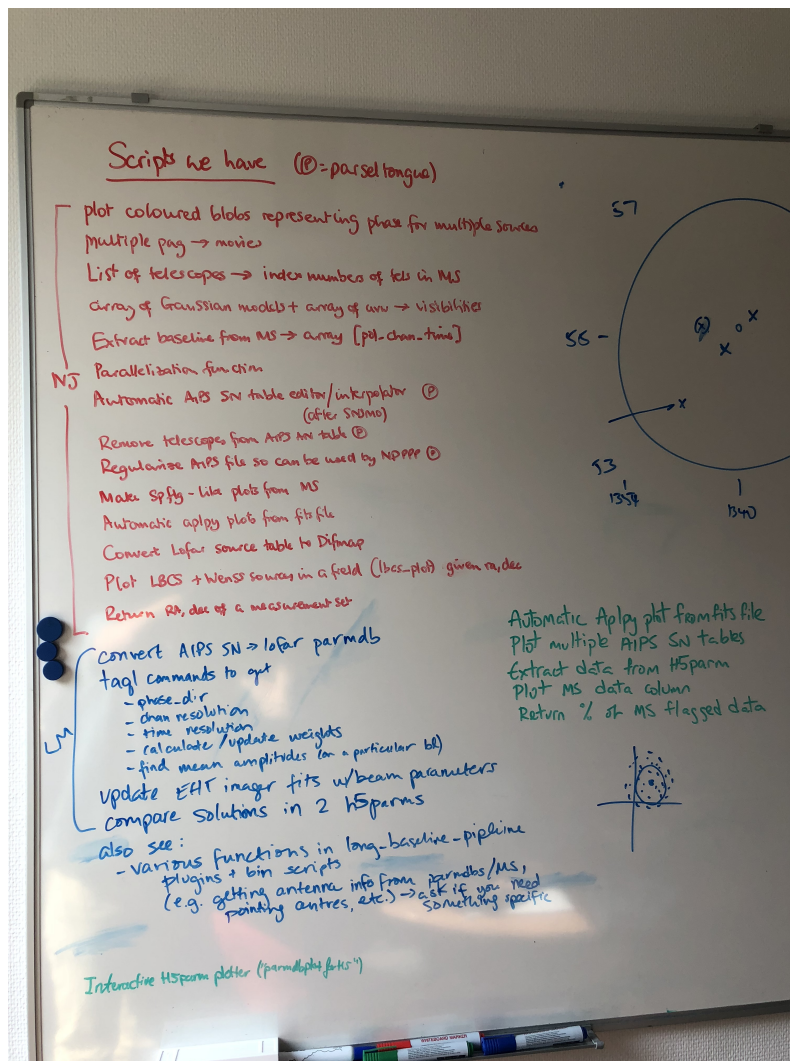 Scripts we have (Ⓟ=parseltongue)
plot coloured blobs representing phase for multiple sources
multiple png → movies
List of telescopes → index numbers of tels in MS
array of Gaussian models + array of uvw → visibilities
Extract baseline from MS → array [pol_chan_time]
Parallelization function
NJ
Automatic AIPS SN table editor/interpolator Ⓟ
(after SNSMO)
Remove telescopes from AIPS AN table Ⓟ
Regularise AIPS file so can be used by NDPPP Ⓟ
Make Spflg-like plots from MS
Automatic aplpy plots from fits file
Convert Lofar source table to Difmap
Plot LBCS + Wenss sources in a field (lbcs_plot) given ra, dec
Return RA, dec of a measurement set
convert AIPS SN → lofar parmdb
taql commands to get
- phase_dir
- chan resolution
- time resolution
- calculate/update weights
- find mean amplitudes (on a particular bl)
LM
update EHT imager fits w/beam parameters
compare solutions in 2 h5parms
also see:
- various functions in long_baseline_pipeline
plugins + bin scripts
(e.g. getting antenna info from parmdbs/MS,
pointing centres, etc.) → ask if you need
something specific
Interactive H5parm plotter ("parmdbplot for H5")
57
x
(x)
x
55 -
x
53
1354
1340
Automatic Aplpy plot from fits file
Plot multiple AIPS SN tables
Extract data from H5parm
Plot MS data column
Return % of MS flagged data
WHITEBOARD MARKER